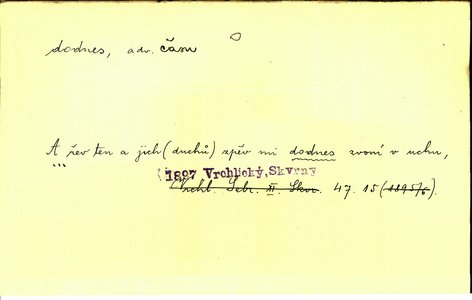 dodnes, adv. času
A řev ten a jich (duchů) zpěv mi dodnes zvoní v uchu,
...
1897 Vrchlický, Skvrny
Vrchl. Sebr. III. Skvr. 47. 15 (1895/6).